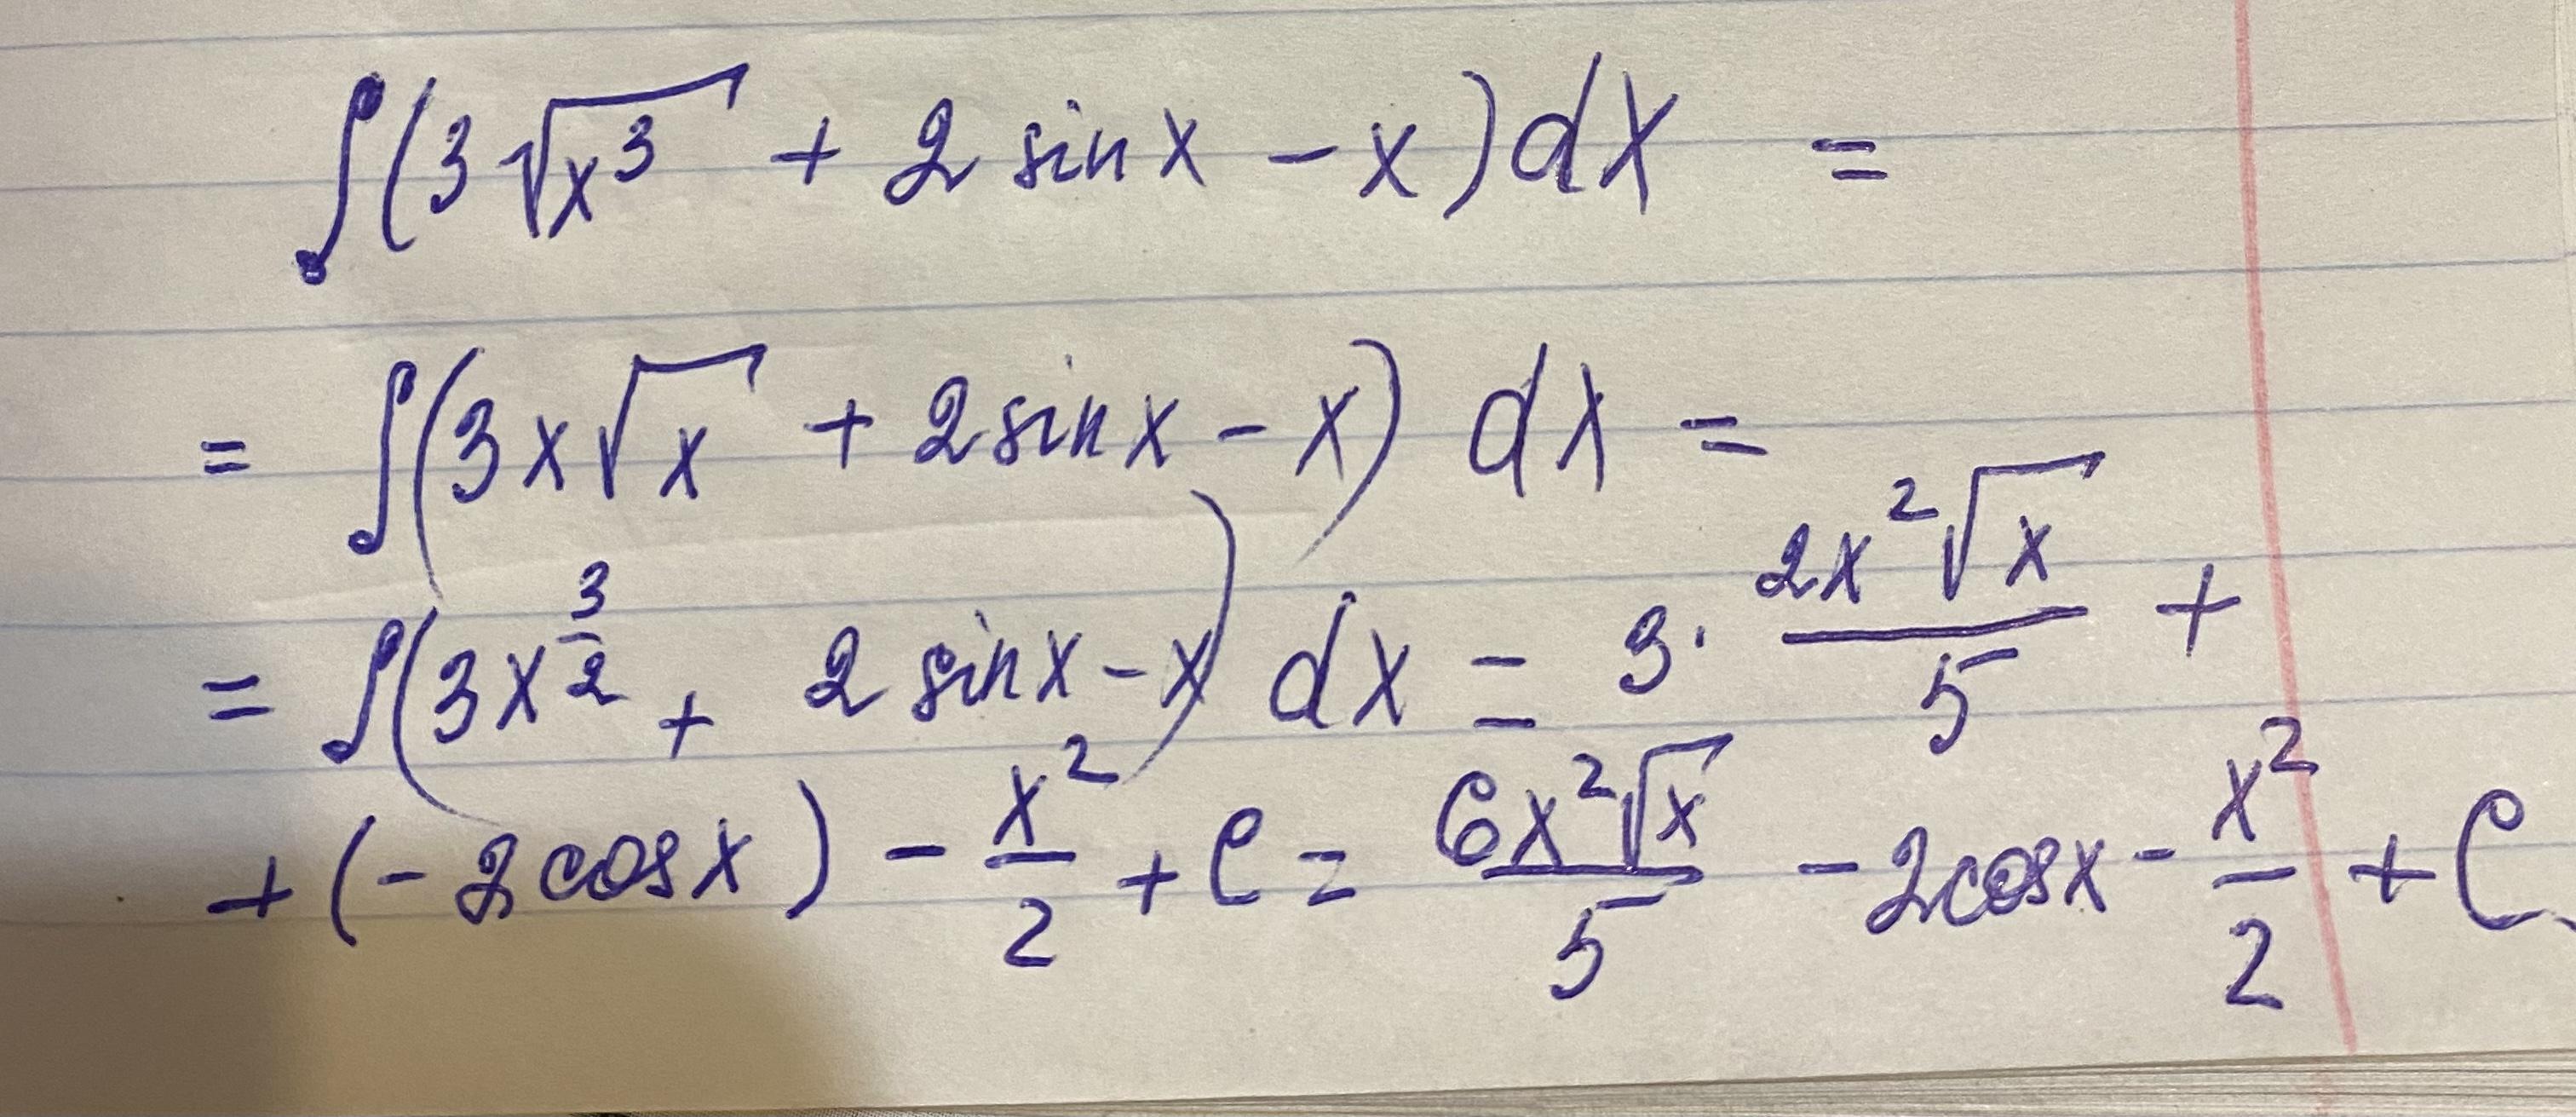 ∫(3√x³ + 2 sin x - x) dx =
= ∫(3x√x + 2 sin x - x) dx =
= ∫(3x^(3/2) + 2 sin x - x) dx = 3 · (2x²√x)/5 +
+ (-2 cos x) - x²/2 + C = (6x²√x)/5 - 2 cos x - x²/2 + C